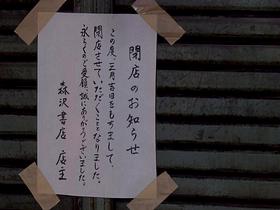 閉店のお知らせ
この度、三月吉日をもちまして、
閉店させていただくことになりました。
永らくのご愛顧、誠にありがとうございました。
森沢書店 店主